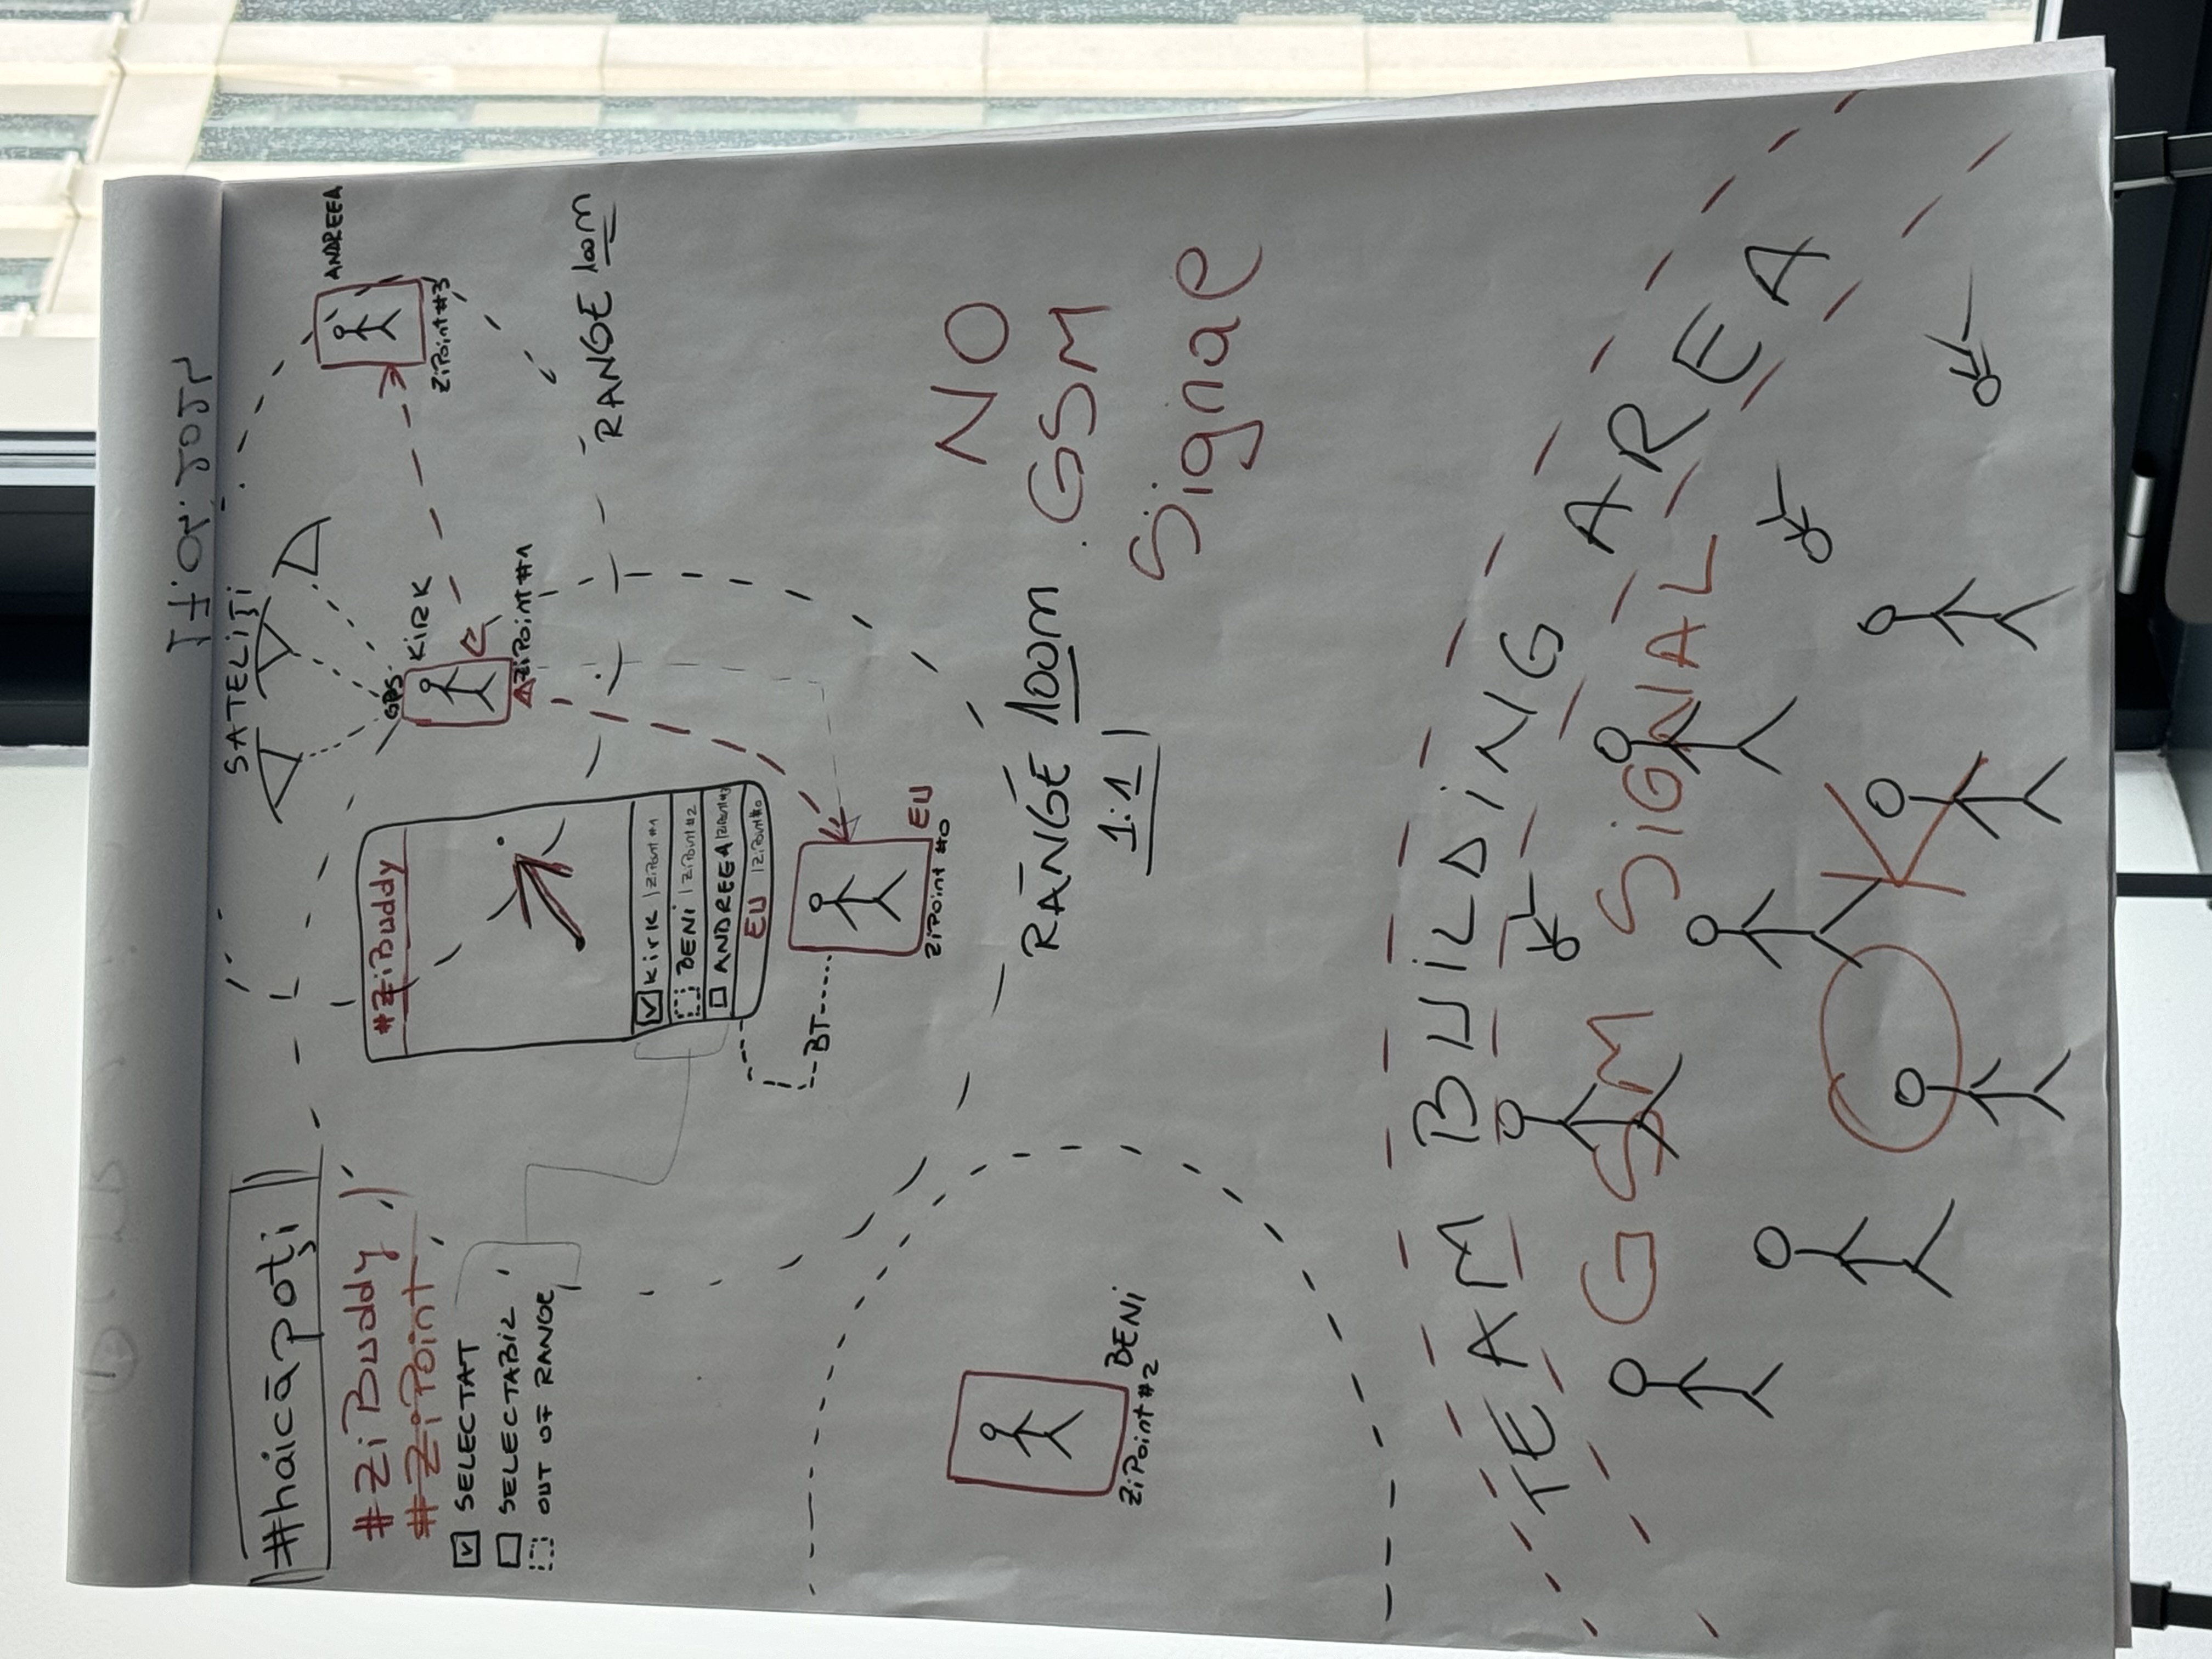 #háicăpoți
#ZiBuddy
#ZiPoint
SELECTAT
SELECTABIL
OUT OF RANGE
SATELIȚI
GPS
KIRK
ZiPoint #1
ANDREEA
ZiPoint #3
RANGE 100m
#ZiBuddy
KirK | ZiPoint #1
BENi | ZiPoint #2
ANDREEA | ZiPoint #3
EU | ZiPoint #0
BT
EU
ZiPoint #0
RANGE 100m
1:1
NO
GSM
Signal
BENi
ZiPoint #2
TEAM BUILDING AREA
GSM SIGNAL
OK